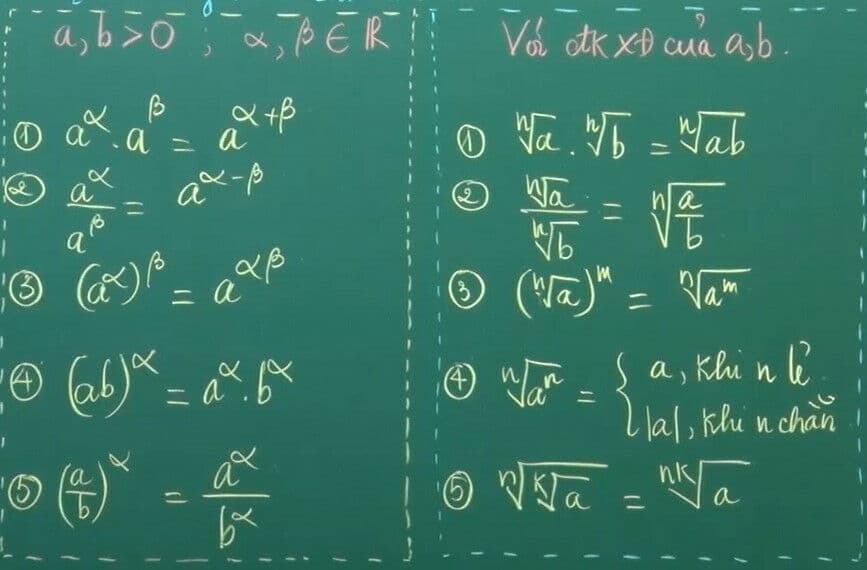 a, b > 0 ; α, β ∈ ℝ
① a^α . a^β = a^(α+β)
② a^α / a^β = a^(α-β)
③ (a^α)^β = a^(αβ)
④ (ab)^α = a^α . b^α
⑤ (a/b)^α = a^α / b^α
Với đk XĐ của a, b.
① ⁿ√a . ⁿ√b = ⁿ√ab
② ⁿ√a / ⁿ√b = ⁿ√(a/b)
③ (ⁿ√a)^m = ⁿ√a^m
④ ⁿ√a^n = { a, khi n lẻ
|a|, khi n chẵn
⑤ ⁿ√ᵏ√a = ⁿᵏ√a